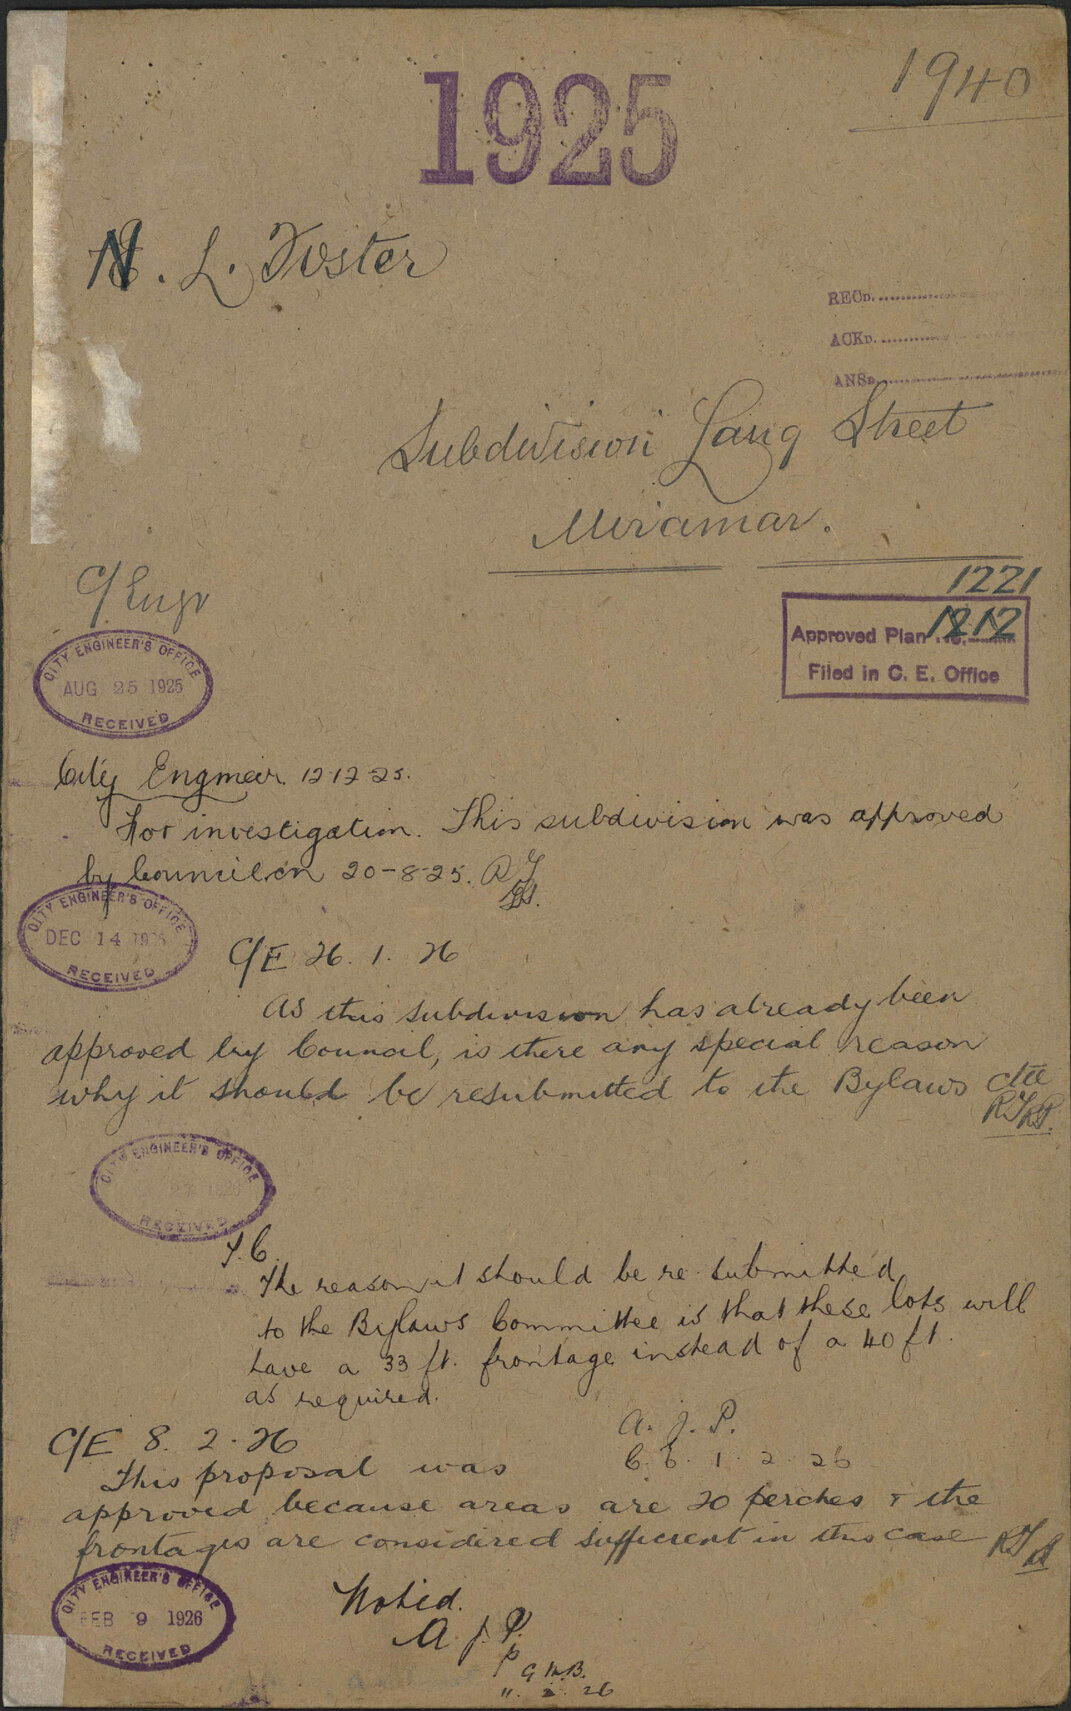 1940
1925
N. L. Foster
RECD.
ACKD.
ANSD.
Subdivision Lang Street
Miramar.
C/Engr
1221
Approved Plan No. 1212
Filed in C. E. Office
CITY ENGINEER'S OFFICE
AUG 25 1925
RECEIVED
City Engineer 12.12.25.
For investigation. This subdivision was approved
by Council on 20-8-25.
CITY ENGINEER'S OFFICE
DEC 14 1925
RECEIVED
C/E 26. 1. 26
As this subdivision has already been
approved by Council, is there any special reason
why it should be resubmitted to the Bylaws Ctte
CITY ENGINEER'S OFFICE
RECEIVED
T.C.
The reason it should be re submitted
to the Bylaws Committee is that these lots will
have a 33 ft. frontage instead of a 40 ft.
as required.
A. J. P.
C. E. 1. 2. 26
C/E 8. 2. 26
This proposal was
approved because areas are 20 perches & the
frontages are considered sufficient in this case
CITY ENGINEER'S OFFICE
FEB 9 1926
RECEIVED
Noted.
A. J. P.
p G.M.B.
11. 2. 26